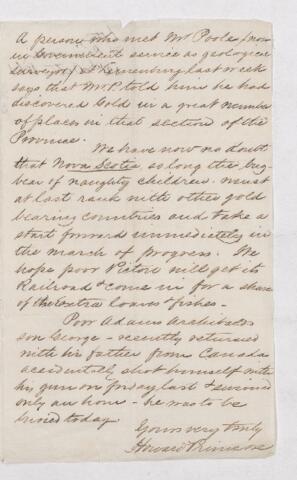 A person who met Mr Poole (now
in Government service as geological
surveyor) at Kemenburg last week
says that Mr P. told him he had
discovered Gold in a great number
of places in that section of the
Province.
We have now no doubt
that Nova Scotia so long the bug-
bear of naughty children must
at last rank with other gold
bearing countries and take a
start forward immediately in
the march of progress. We
hope poor Pictou will get its
Railroad & come in for a share
of the loaves & fishes -
Poor Adams Archibald's
son George - recently returned
with his father from Canada
accidentally shot himself with
his gun on friday last & survived
only an hour - he was to be
buried today.
Yours very truly
Howard Primrose